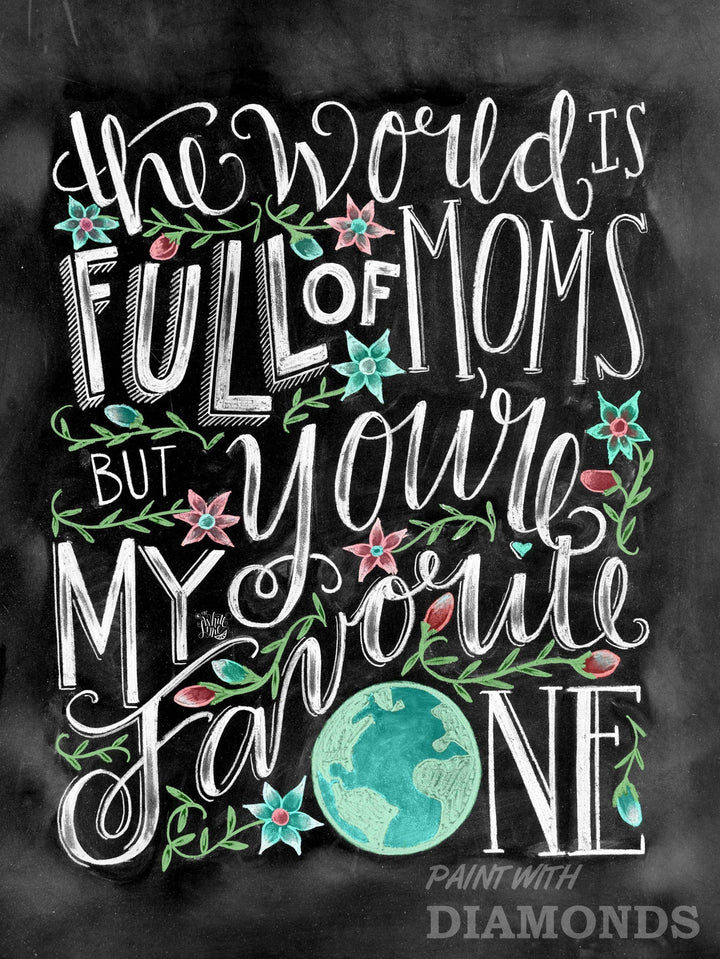 the World IS
FULL OF MOMS
BUT you're
MY favorite
NE
the White Lime
PAINT WITH
DIAMONDS